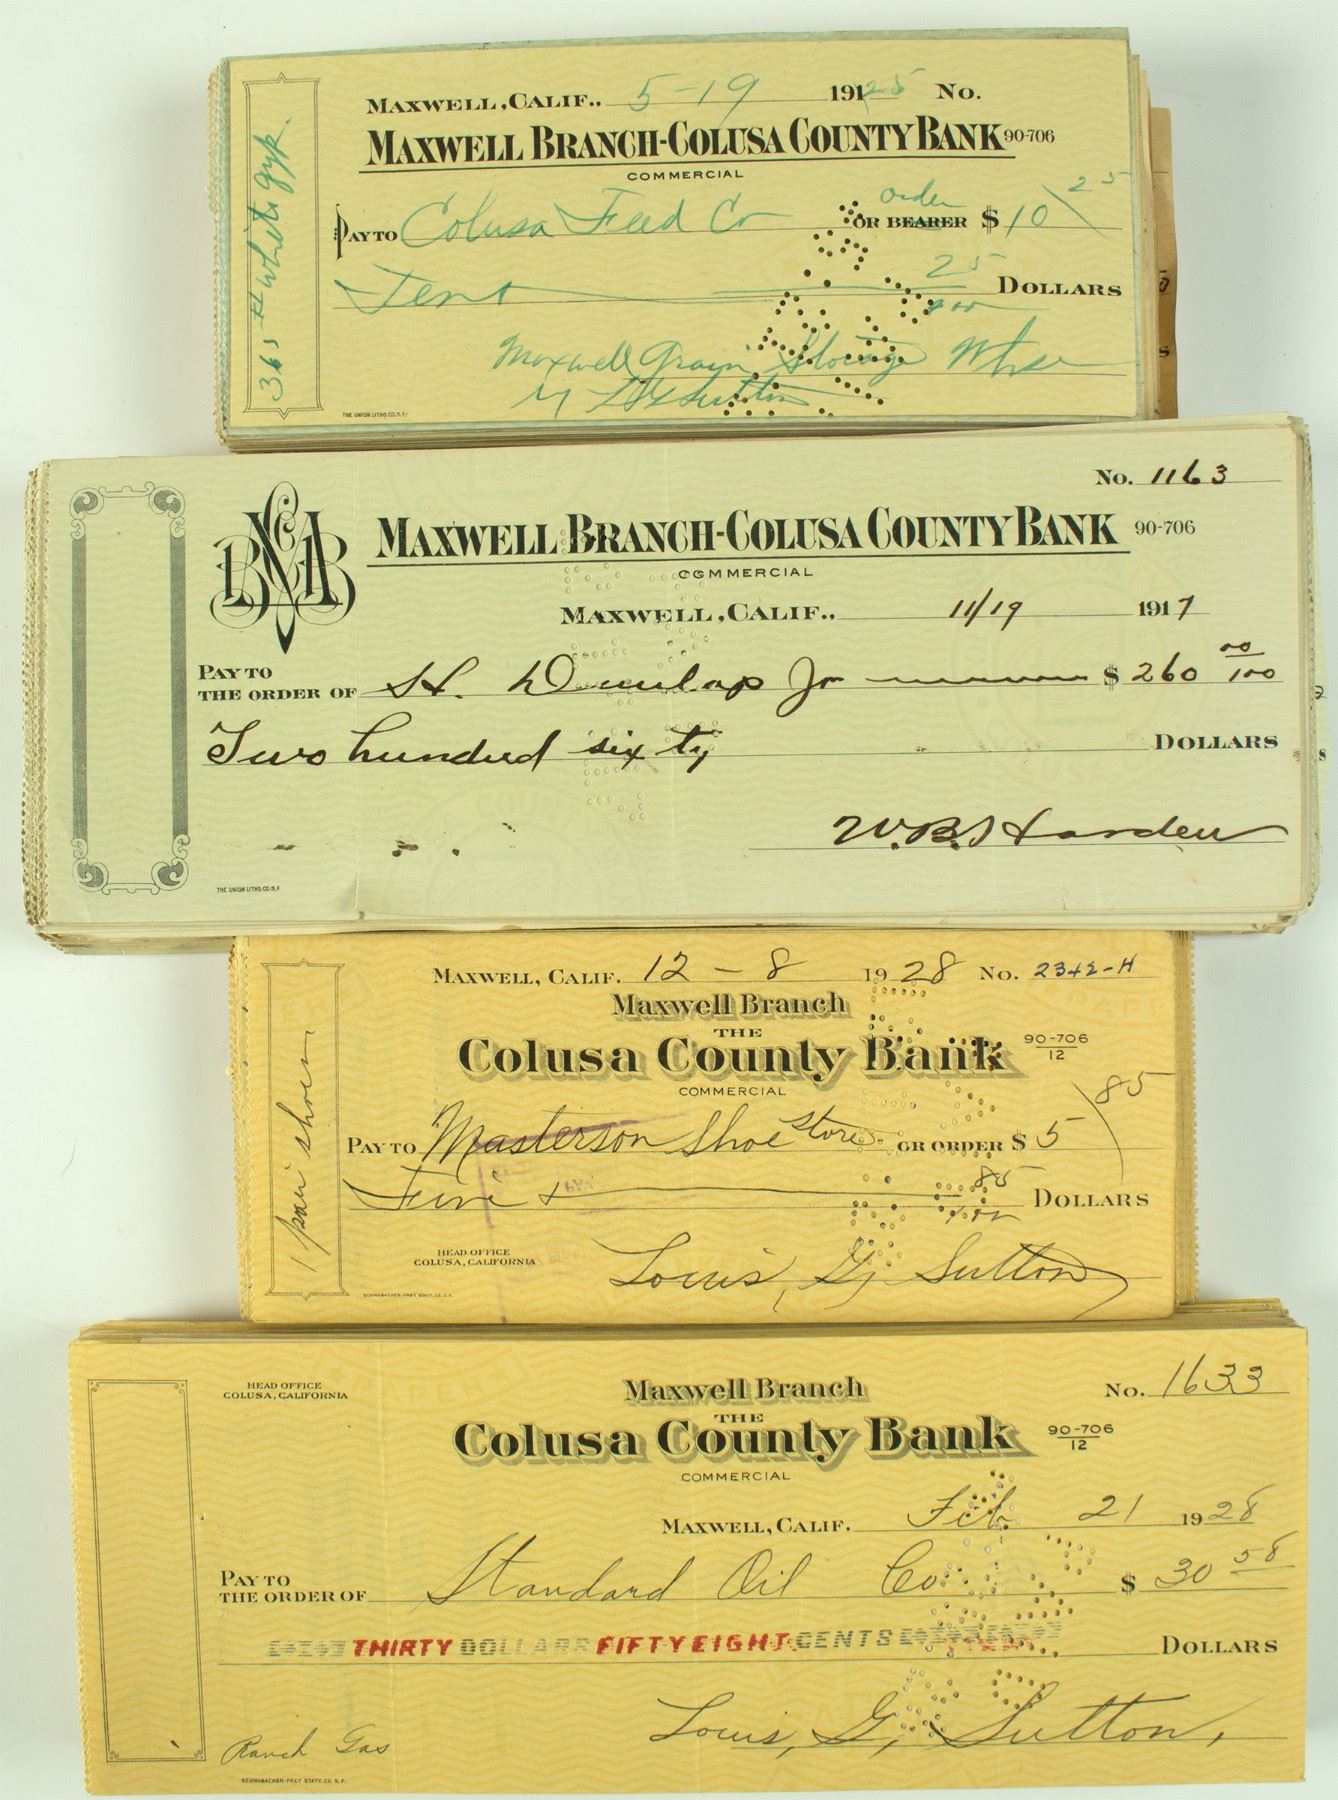 MAXWELL, CALIF., 5-19 191 25 No.
MAXWELL BRANCH-COLUSA COUNTY BANK 90-706
COMMERCIAL
PAY TO Colusa Feed Co order OR BEARER $ 10 25
Ten 25 DOLLARS
Maxwell Grain Storage Whse
Sutton
THE UNION LITHO. CO. S.F.
365 #
No. 1163
MAXWELL BRANCH-COLUSA COUNTY BANK 90-706
COMMERCIAL
MAXWELL, CALIF., 11/19 1917
PAY TO
THE ORDER OF H. Dunlap Jr $ 260 00/100
Two hundred sixty DOLLARS
W.B. Harden
THE UNION LITHO. CO. S.F.
MAXWELL, CALIF. 12-8 1928 No. 2342-H
Maxwell Branch
THE
Colusa County Bank 90-706/12
COMMERCIAL
PAY TO Masterson Shoe Store OR ORDER $ 5 85
Five + 85/100 DOLLARS
HEAD OFFICE
COLUSA, CALIFORNIA
Louis, G, Sutton
SCHWABACHER-FREY STATY. CO. S.F.
1 pair shoes
HEAD OFFICE
COLUSA, CALIFORNIA
Maxwell Branch No. 1633
THE
Colusa County Bank 90-706/12
COMMERCIAL
MAXWELL, CALIF. Feb 21 1928
PAY TO
THE ORDER OF Standard Oil Co $ 30 58
THIRTY DOLLARS FIFTY EIGHT CENTS DOLLARS
Louis, G, Sutton,
Ranch Gas
SCHWABACHER-FREY STATY. CO. S.F.